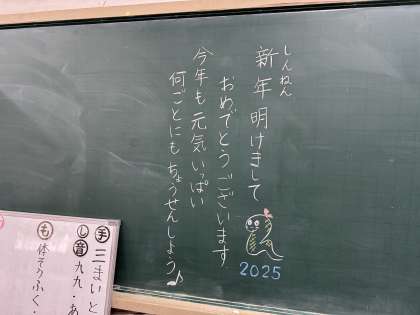 しんねん
新年明けまして
おめでとうございます
今年も元気いっぱい
何ごとにもちょうせんしよう♪
2025
手 三まいと
し 音 九九・あ
も 体そうふく・